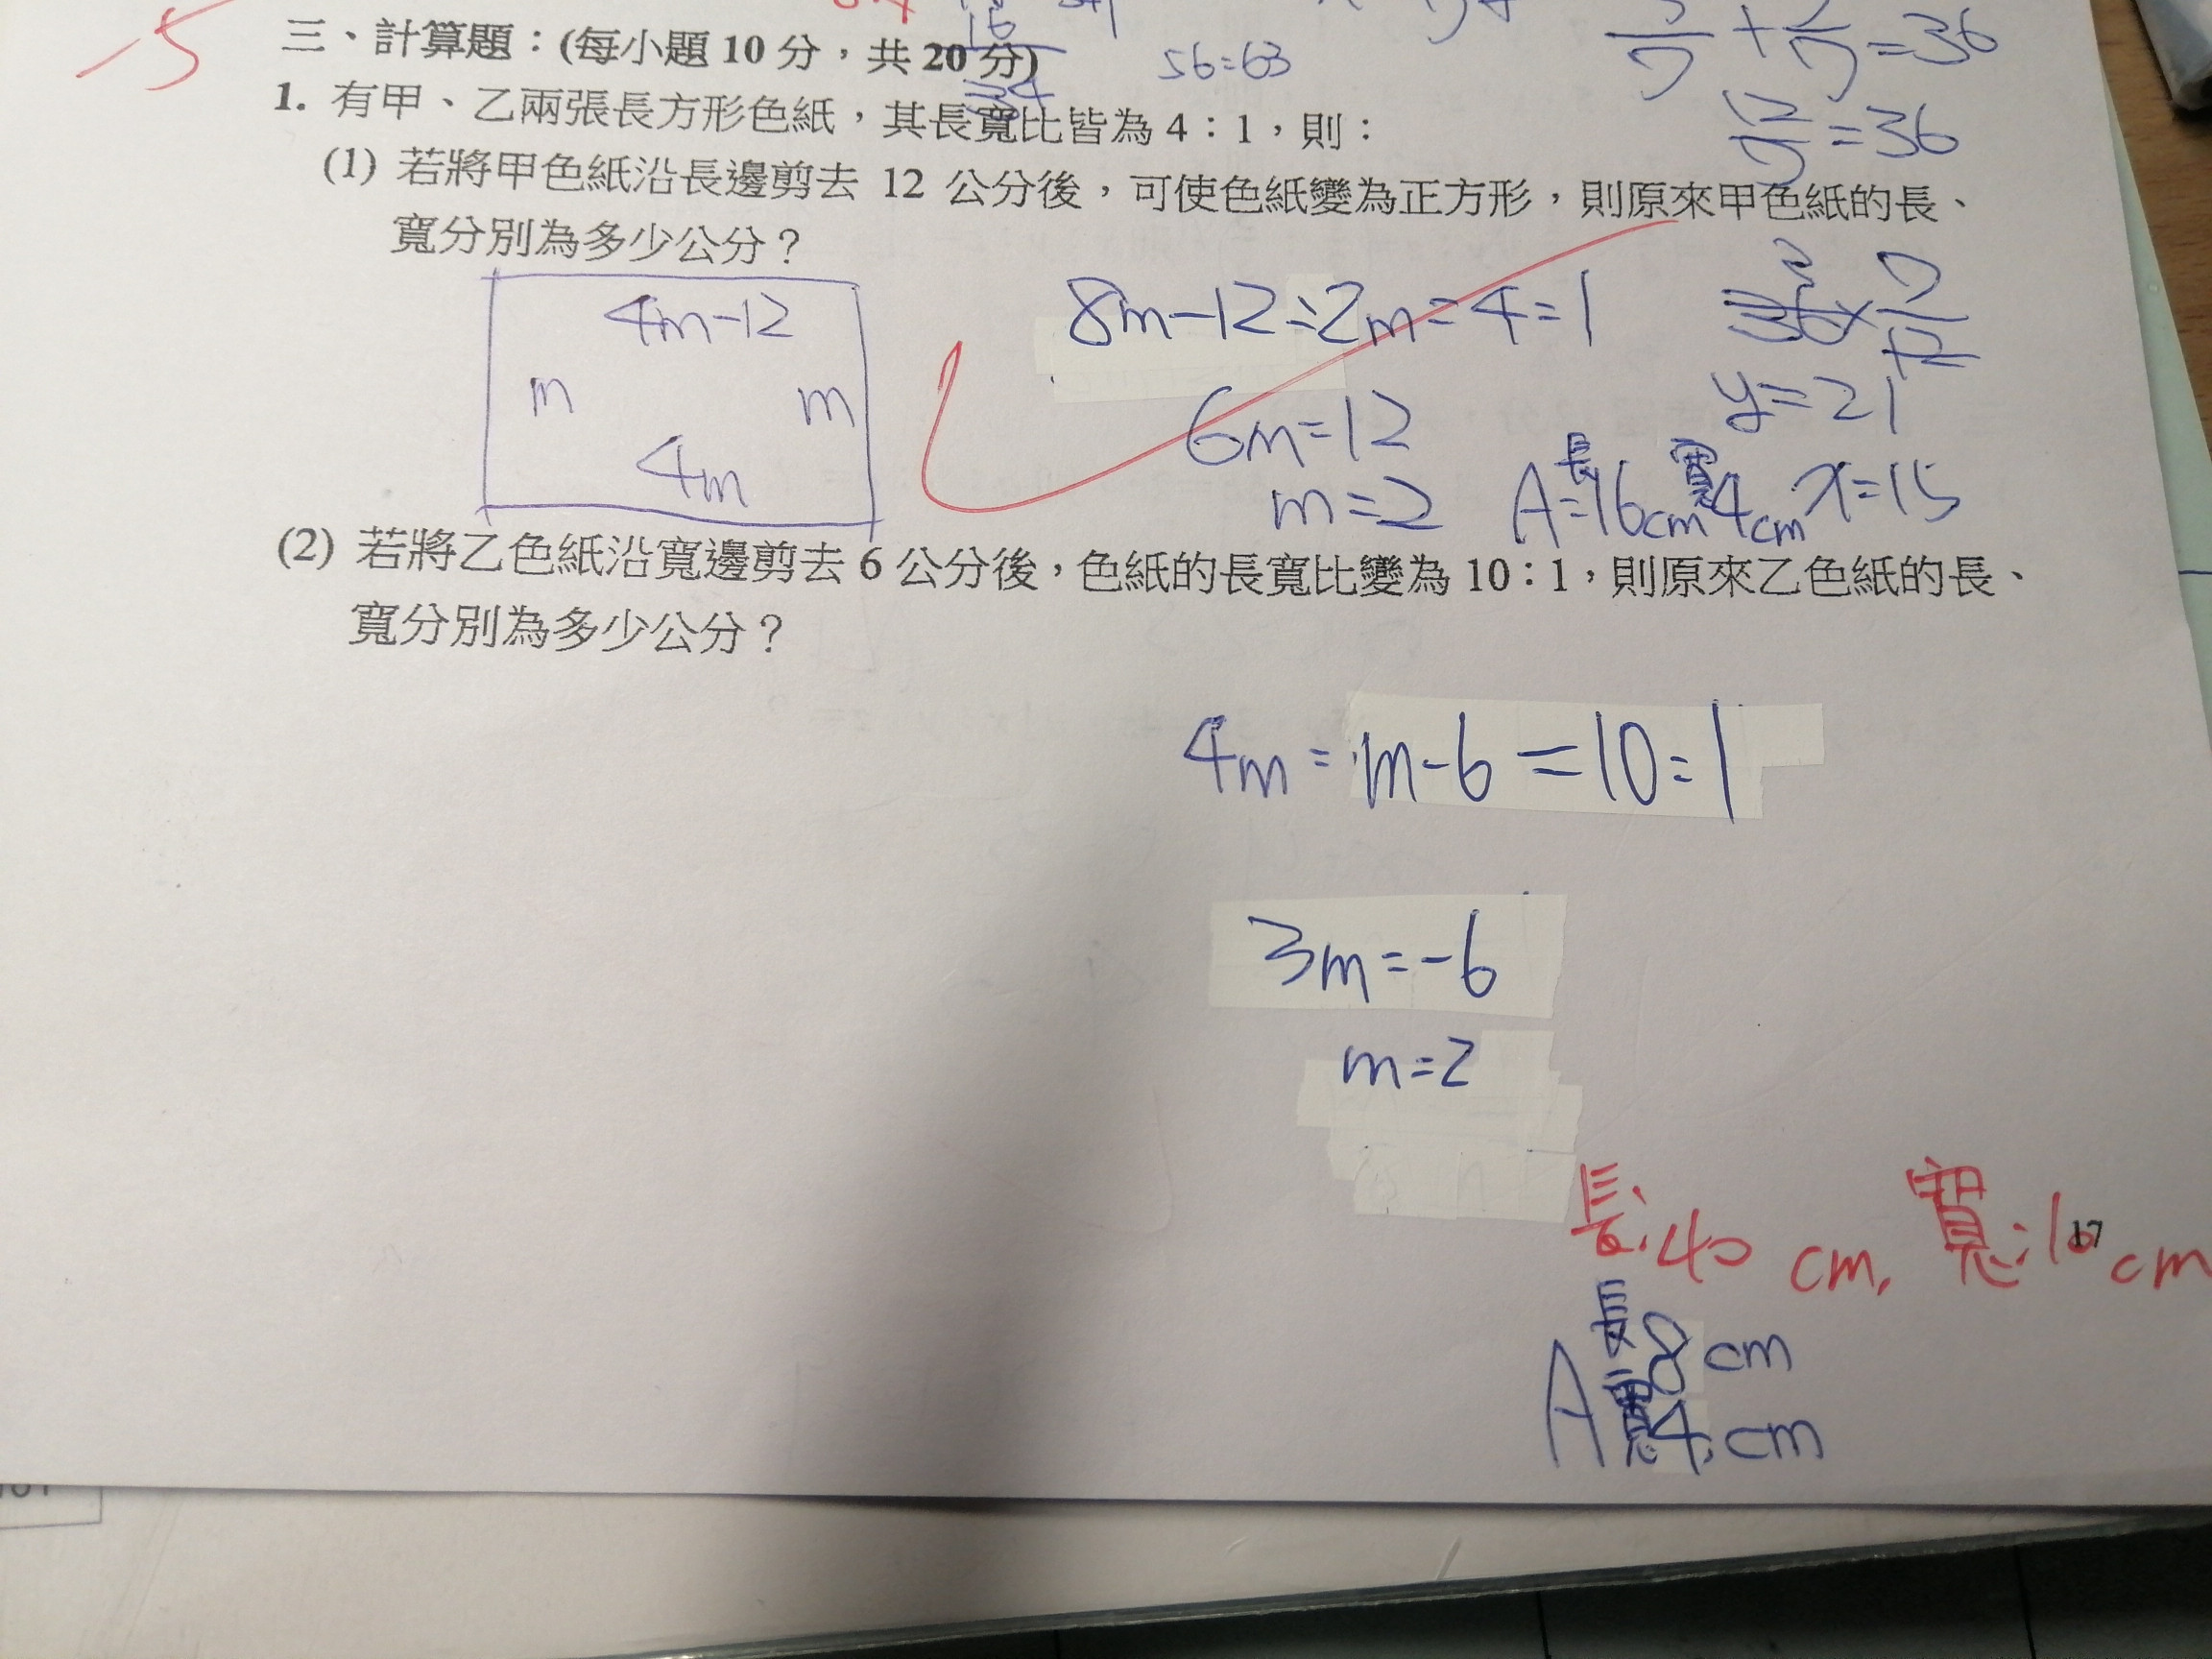 -5
三、計算題：(每小題 10 分，共 20 分)
16
34
56=63
=36
12/7=36
1. 有甲、乙兩張長方形色紙，其長寬比皆為 4：1，則：
(1) 若將甲色紙沿長邊剪去 12 公分後，可使色紙變為正方形，則原來甲色紙的長、
寬分別為多少公分？
4m-12
m m
4m
8m-12=2m=4=1
6m=12
m=2
36×7/12
y=21
x=15
A=長16cm 寬4cm
(2) 若將乙色紙沿寬邊剪去 6 公分後，色紙的長寬比變為 10：1，則原來乙色紙的長、
寬分別為多少公分？
4m=m-6=10=1
3m=-6
m=2
長:40 cm, 寬:10 cm
17
A 長8cm
寬4cm